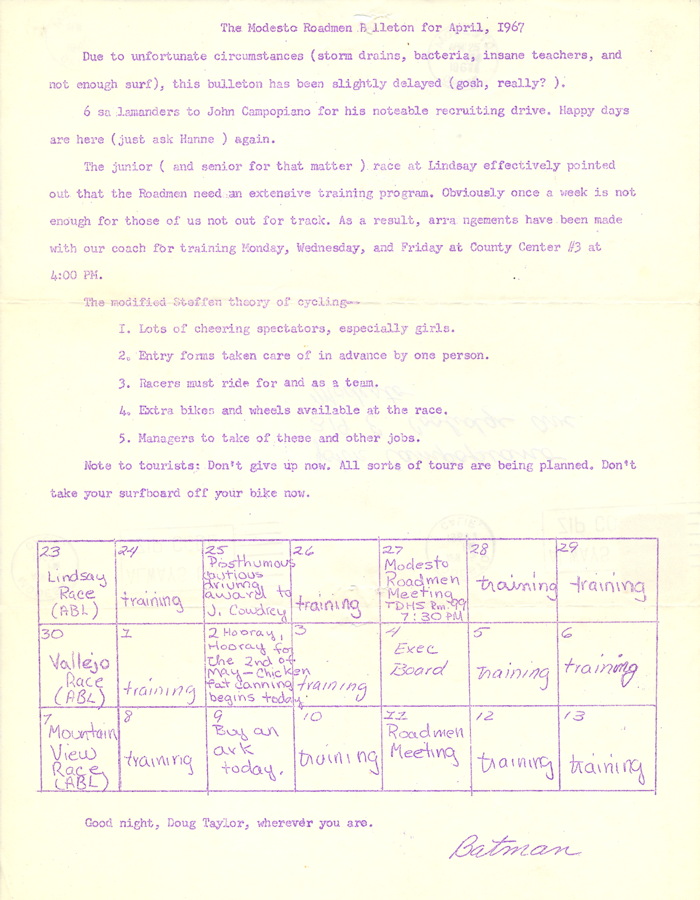 The Modesto Roadmen Bulleton for April, I967
Due to unfortunate circumstances (storm drains, bacteria, insane teachers, and
not enough surf), this bulleton has been slightly delayed (gosh, really? ).
6 sa lamanders to John Campopiano for his noteable recruiting drive. Happy days
are here (just ask Hanne ) again.
The junior ( and senior for that matter ) race at Lindsay effectively pointed
out that the Roadmen need an extensive training program. Obviously once a week is not
enough for those of us not out for track. As a result, arra ngements have been made
with our coach for training Monday, Wednesday, and Friday at County Center #3 at
4:00 PM.
The modified Steffen theory of cycling--
I. Lots of cheering spectators, especially girls.
2. Entry forms taken care of in advance by one person.
3. Racers must ride for and as a team.
4. Extra bikes and wheels available at the race.
5. Managers to take of these and other jobs.
Note to tourists: Don't give up now. All sorts of tours are being planned. Don't
take your surfboard off your bike now.
23
Lindsay
Race
(ABL)
24
training
25
Posthumous
cautious
driving
award to
J. Cowdrey
26
training
27
Modesto
Roadmen
Meeting
TDHS Rm. 99
7:30 PM
28
training
29
training
30
Vallejo
Race
(ABL)
1
training
2 Hooray,
Hooray for
the 2nd of
May - Chicken
fat canning
begins today.
3
training
4
Exec
Board
5
training
6
training
7
Mountain
View
Race
(ABL)
8
training
9
Buy an
ark
today.
10
training
11
Roadmen
Meeting
12
training
13
training
Good night, Doug Taylor, wherever you are.
Batman